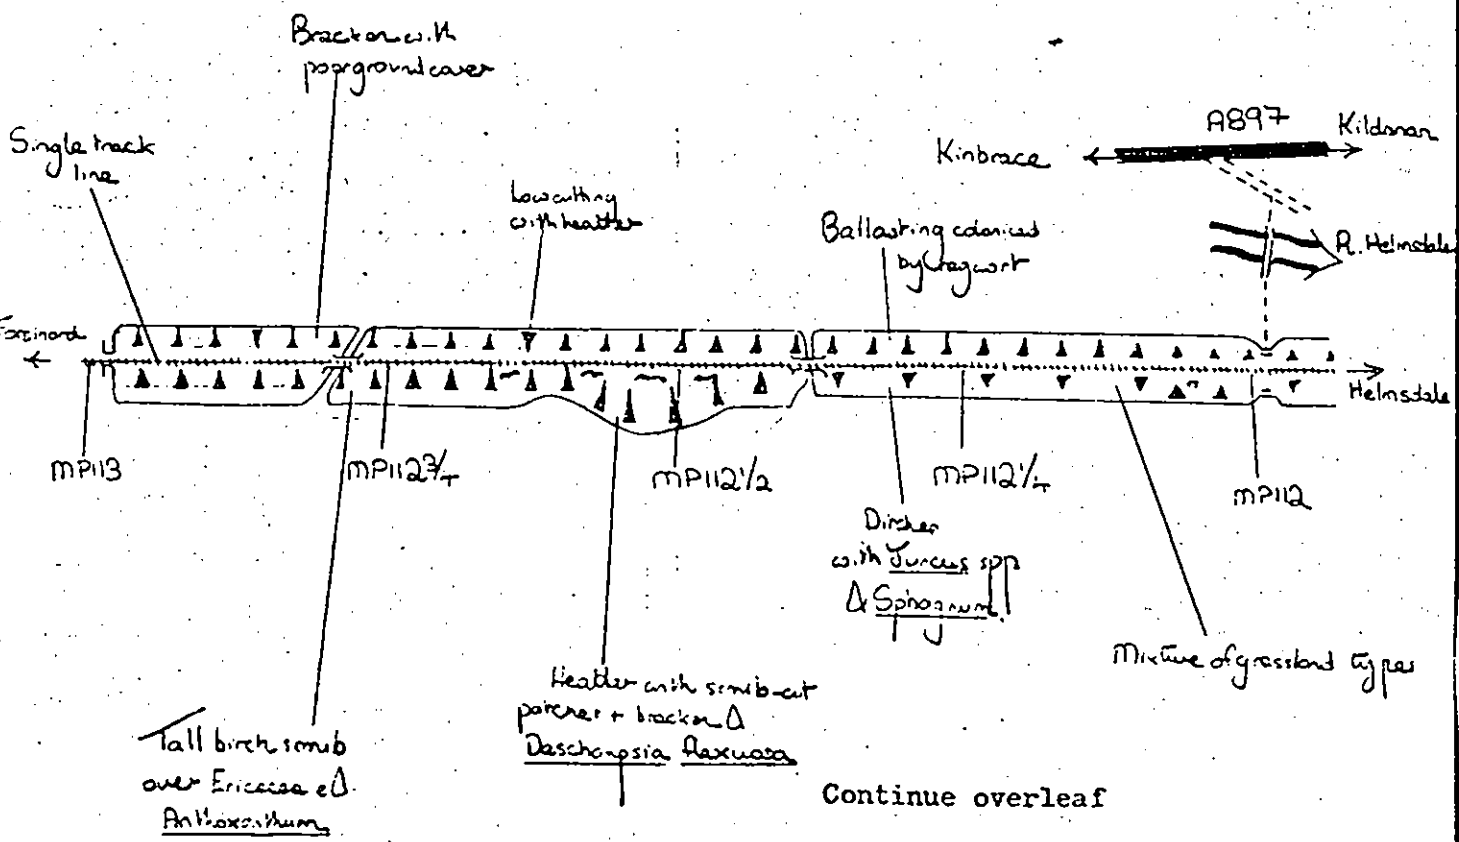 Bracken with
poor ground cover
Single track
line
Low cutting
with heather
Ballasting colonised
by ragwort
A897
Kinbrace
Kildonan
R. Helmsdale
Forsinard
Helmsdale
MP113
MP112 3/4
MP112 1/2
MP112 1/4
MP112
Ditches
with Juncus spp
& Sphagnum
Mixture of grassland types
Heather with scrub-cut
patches + bracken &
Deschampsia flexuosa
Tall birch scrub
over Ericaceae &
Anthoxanthum
Continue overleaf